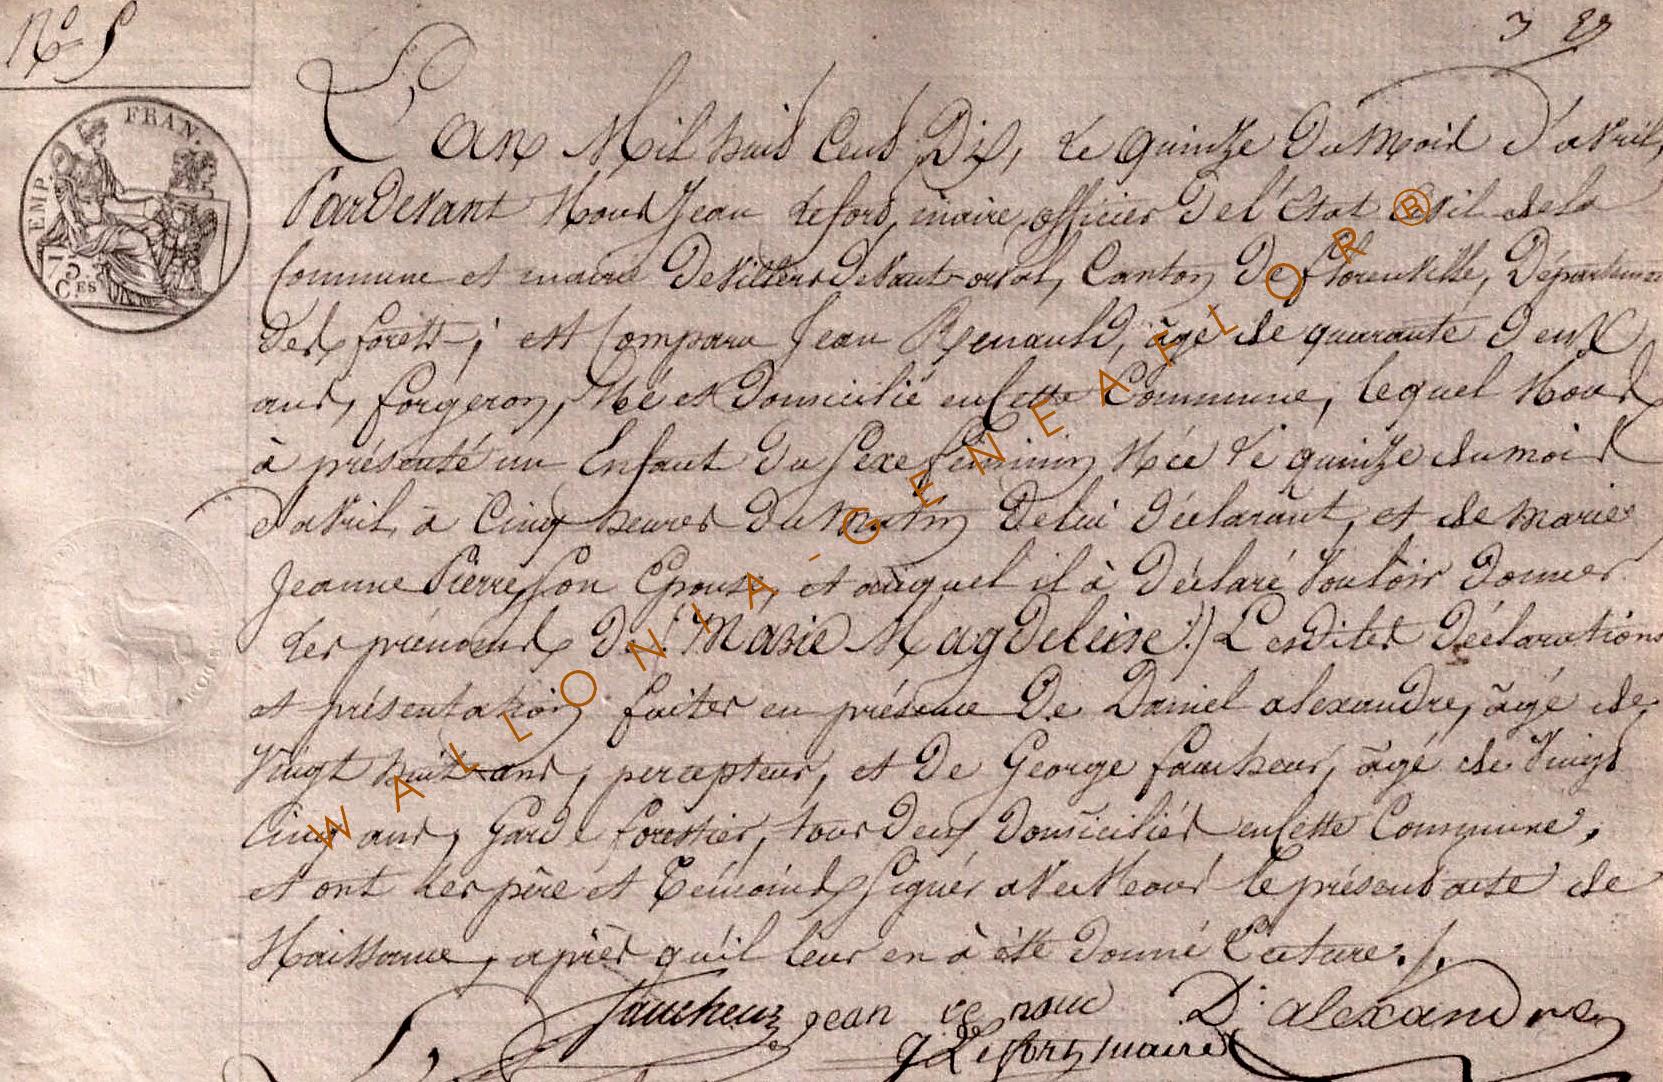 N° 5
3
FRAN.
EMP.
75
C.ES
L'an Mil huit Cent Dix, Le quinze Du Mois d'avril,
Pardevant Nous Jean Lefort, maire, officier De l'Etat Civil de la
Commune et mairie De Villers Devant-orval, Canton De florenville, Département
Des forets; est Comparu Jean Renauld, âgé de quarante Deux
ans, forgeron, Né et Domicilié en Cette Commune, lequel Nous
à présenté un Enfant Du Sexe féminin Née Le quinze du mois
d'avril, à Cinq heures Du Matin De lui Déclarant, et de marie
Jeanne Pierresson Epouse, et auquel il à Déclaré Vouloir Donner
Les prénoms De (Marie Magdeleine:) Lesdites Déclarations
et présentation faites en présence De Daniel alexandre, âgé de
Vingt huit ans, percepteur, et De George faucheur, âgé de Vingt
Cinq ans, Garde forestier, tous Deux Domiciliés en Cette Commune,
et ont Les père et Témoins Signés avec Nous le présent acte de
Naissance, après qu'il leur en à été Donné Lecture./.
faucheur jean re naud D: alexandre
J Lefort, maire
WALLONIA-GENEAFLOR®